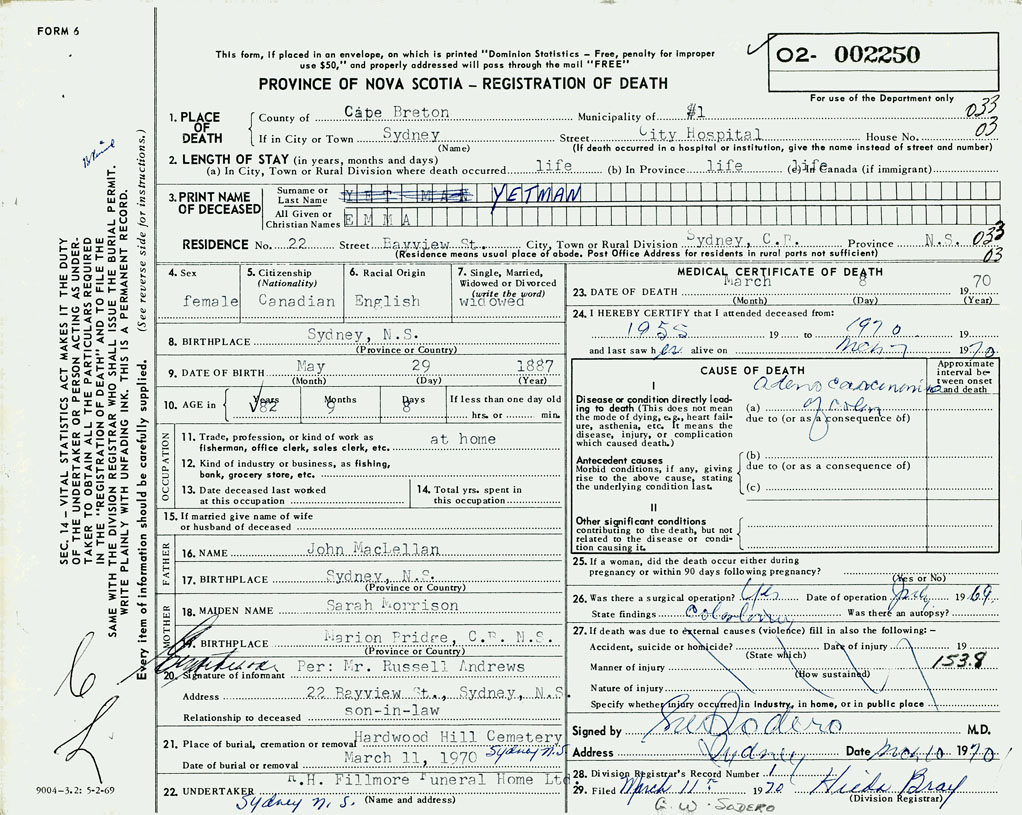 FORM 6
This form, if placed in an envelope, on which is printed "Dominion Statistics – Free, penalty for improper
use $50," and properly addressed will pass through the mail "FREE"
02- 002250
PROVINCE OF NOVA SCOTIA – REGISTRATION OF DEATH
For use of the Department only
1. PLACE OF DEATH
County of Cape Breton Municipality of #1 033
If in City or Town Sydney Street City Hospital House No. 03
(Name) (If death occurred in a hospital or institution, give the name instead of street and number)
2. LENGTH OF STAY (in years, months and days)
(a) In City, Town or Rural Division where death occurred life (b) In Province life (c) In Canada (if immigrant) life
3. PRINT NAME OF DECEASED
Surname or Last Name YETMAN YETMAN
All Given or Christian Names EMMA
RESIDENCE No. 22 Street Bayview St. City, Town or Rural Division Sydney, C.B. Province N.S. 033
(Residence means usual place of abode. Post Office Address for residents in rural parts not sufficient) 03
4. Sex
female
5. Citizenship
(Nationality)
Canadian
6. Racial Origin
English
7. Single, Married,
Widowed or Divorced
(write the word)
widowed
8. BIRTHPLACE Sydney, N.S.
(Province or Country)
9. DATE OF BIRTH May 29 1887
(Month) (Day) (Year)
10. AGE in Years Months Days If less than one day old
82 9 8 hrs. or min.
OCCUPATION
11. Trade, profession, or kind of work as
fisherman, office clerk, sales clerk, etc. at home
12. Kind of industry or business, as fishing,
bank, grocery store, etc.
13. Date deceased last worked
at this occupation
14. Total yrs. spent in
this occupation
15. If married give name of wife
or husband of deceased
FATHER
16. NAME John MacLellan
17. BIRTHPLACE Sydney, N.S.
(Province or Country)
MOTHER
18. MAIDEN NAME Sarah Morrison
19. BIRTHPLACE Marion Pridre, C.B. N.S.
(Province or Country)
20. Signature of informant Per: Mr. Russell Andrews
Address 22 Bayview St., Sydney, N.S.
Relationship to deceased son-in-law
21. Place of burial, cremation or removal Hardwood Hill Cemetery
Sydney N.S.
Date of burial or removal March 11, 1970
22. UNDERTAKER H. Fillmore Funeral Home Ltd.
Sydney N.S. (Name and address)
MEDICAL CERTIFICATE OF DEATH
23. DATE OF DEATH March 8 1970
(Month) (Day) (Year)
24. I HEREBY CERTIFY that I attended deceased from:
1955 19 to 1970 19
and last saw her alive on Mch 7 1970
CAUSE OF DEATH
Approximate interval between onset and death
I
Disease or condition directly leading to death (This does not mean the mode of dying, e.g., heart failure, asthenia, etc. It means the disease, injury, or complication which caused death.)
(a) adenocarcinoma of colon
due to (or as a consequence of)
Antecedent causes
Morbid conditions, if any, giving rise to the above cause, stating the underlying condition last.
(b)
due to (or as a consequence of)
(c)
II
Other significant conditions
contributing to the death, but not related to the disease or condition causing it.
25. If a woman, did the death occur either during
pregnancy or within 90 days following pregnancy?
(Yes or No)
26. Was there a surgical operation? Yes Date of operation July 1969
State findings Was there an autopsy?
27. If death was due to external causes (violence) fill in also the following: –
Accident, suicide or homicide? Date of injury 19
(State which)
Manner of injury 153.8
(How sustained)
Nature of injury
Specify whether injury occurred in Industry, in home, or in public place
Signed by Sodero M.D.
Address Sydney Date Mch 10 1970
28. Division Registrar's Record Number 1
29. Filed March 11 1970 Hilda Bray
(Division Registrar)
G. W. SODERO
SEC. 14 – VITAL STATISTICS ACT MAKES IT THE DUTY
OF THE UNDERTAKER OR PERSON ACTING AS UNDER-
TAKER TO OBTAIN ALL THE PARTICULARS REQUIRED
IN THE "REGISTRATION OF DEATH" AND TO FILE THE
SAME WITH THE DIVISION REGISTRAR WHO SHALL ISSUE THE BURIAL PERMIT.
WRITE PLAINLY WITH UNFADING INK. THIS IS A PERMANENT RECORD.
Every item of information should be carefully supplied. (See reverse side for instructions.)
9004-3.2: 5-2-69